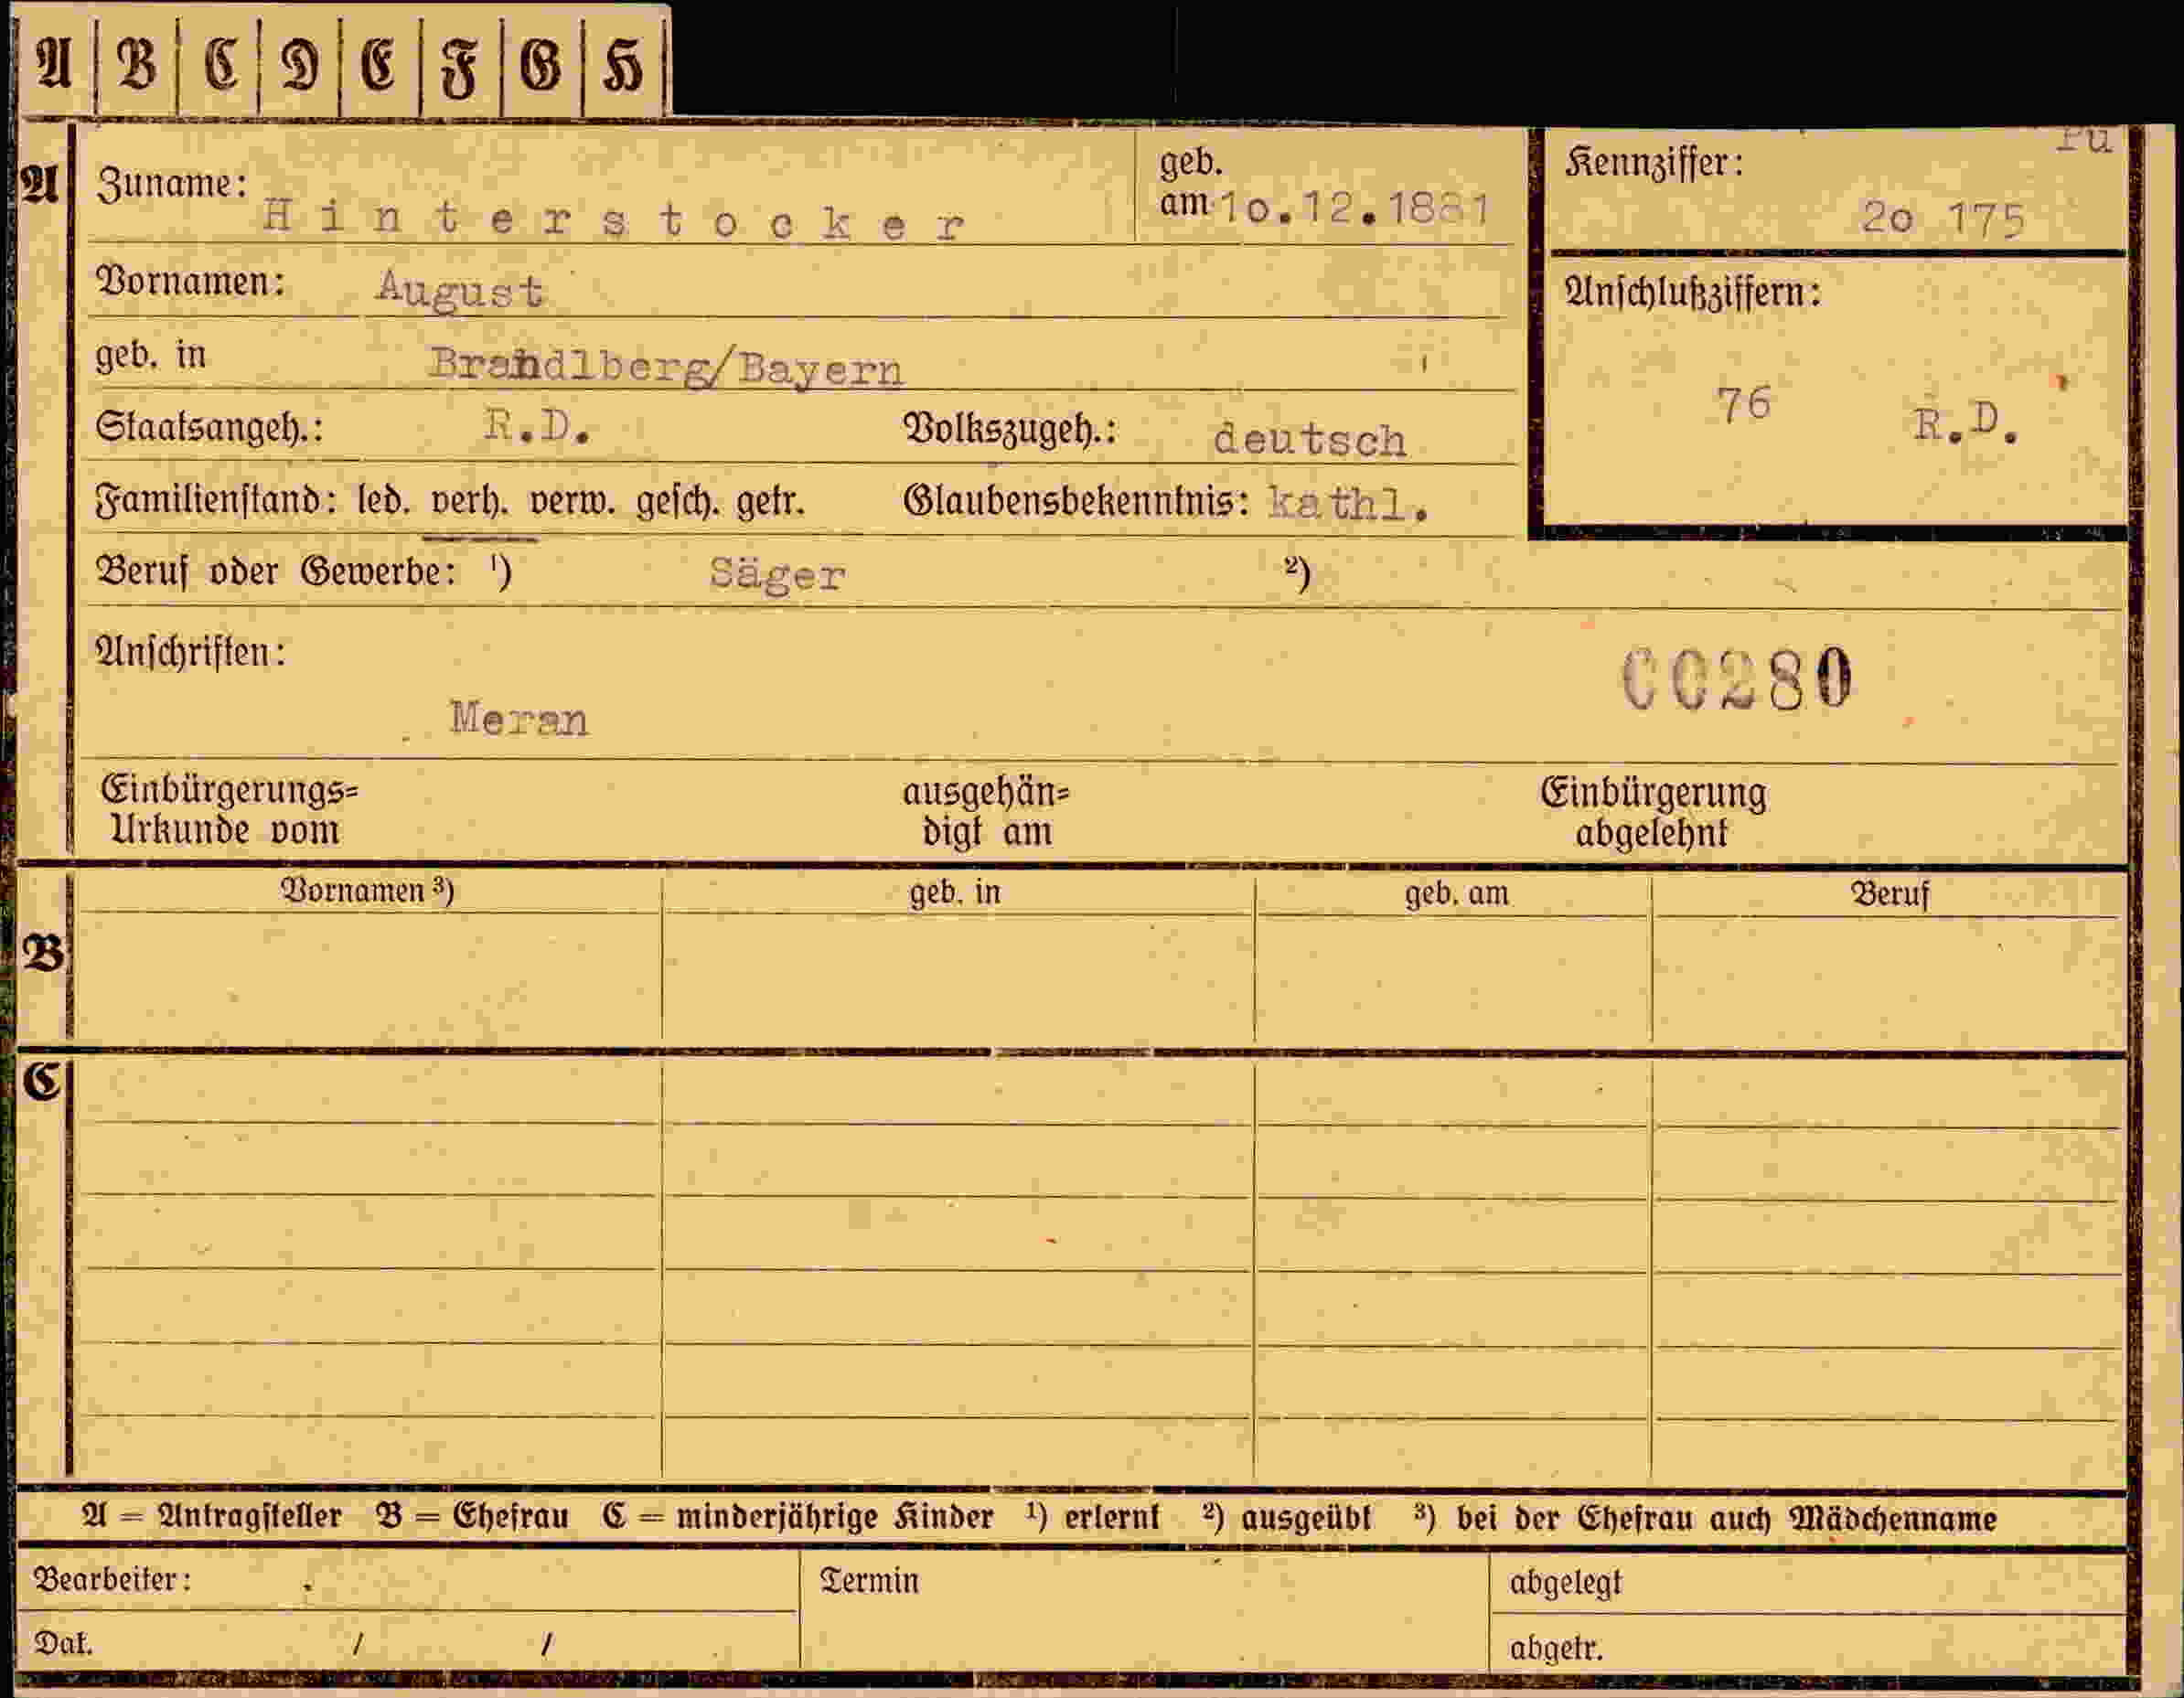 A B C D E F G H
A
Zuname: Hinterstocker
geb.
am 1o.12.1881
Kennziffer:
2o 175
Vornamen: August
Anschlußziffern:
geb. in Brandlberg/Bayern
76 R.D.
Staatsangeh.: R.D. Volkszugeh.: deutsch
Familienstand: led. verh. verw. gesch. getr. Glaubensbekenntnis: kathl.
Beruf oder Gewerbe: ¹) Säger ²)
Anschriften:
00280
Meran
Einbürgerungs= ausgehän= Einbürgerung
Urkunde vom digt am abgelehnt
B
Vornamen ³) geb. in geb. am Beruf
C
A = Antragsteller B = Ehefrau C = minderjährige Kinder ¹) erlernt ²) ausgeübt ³) bei der Ehefrau auch Mädchenname
Bearbeiter: Termin abgelegt
Dat. / / abgetr.